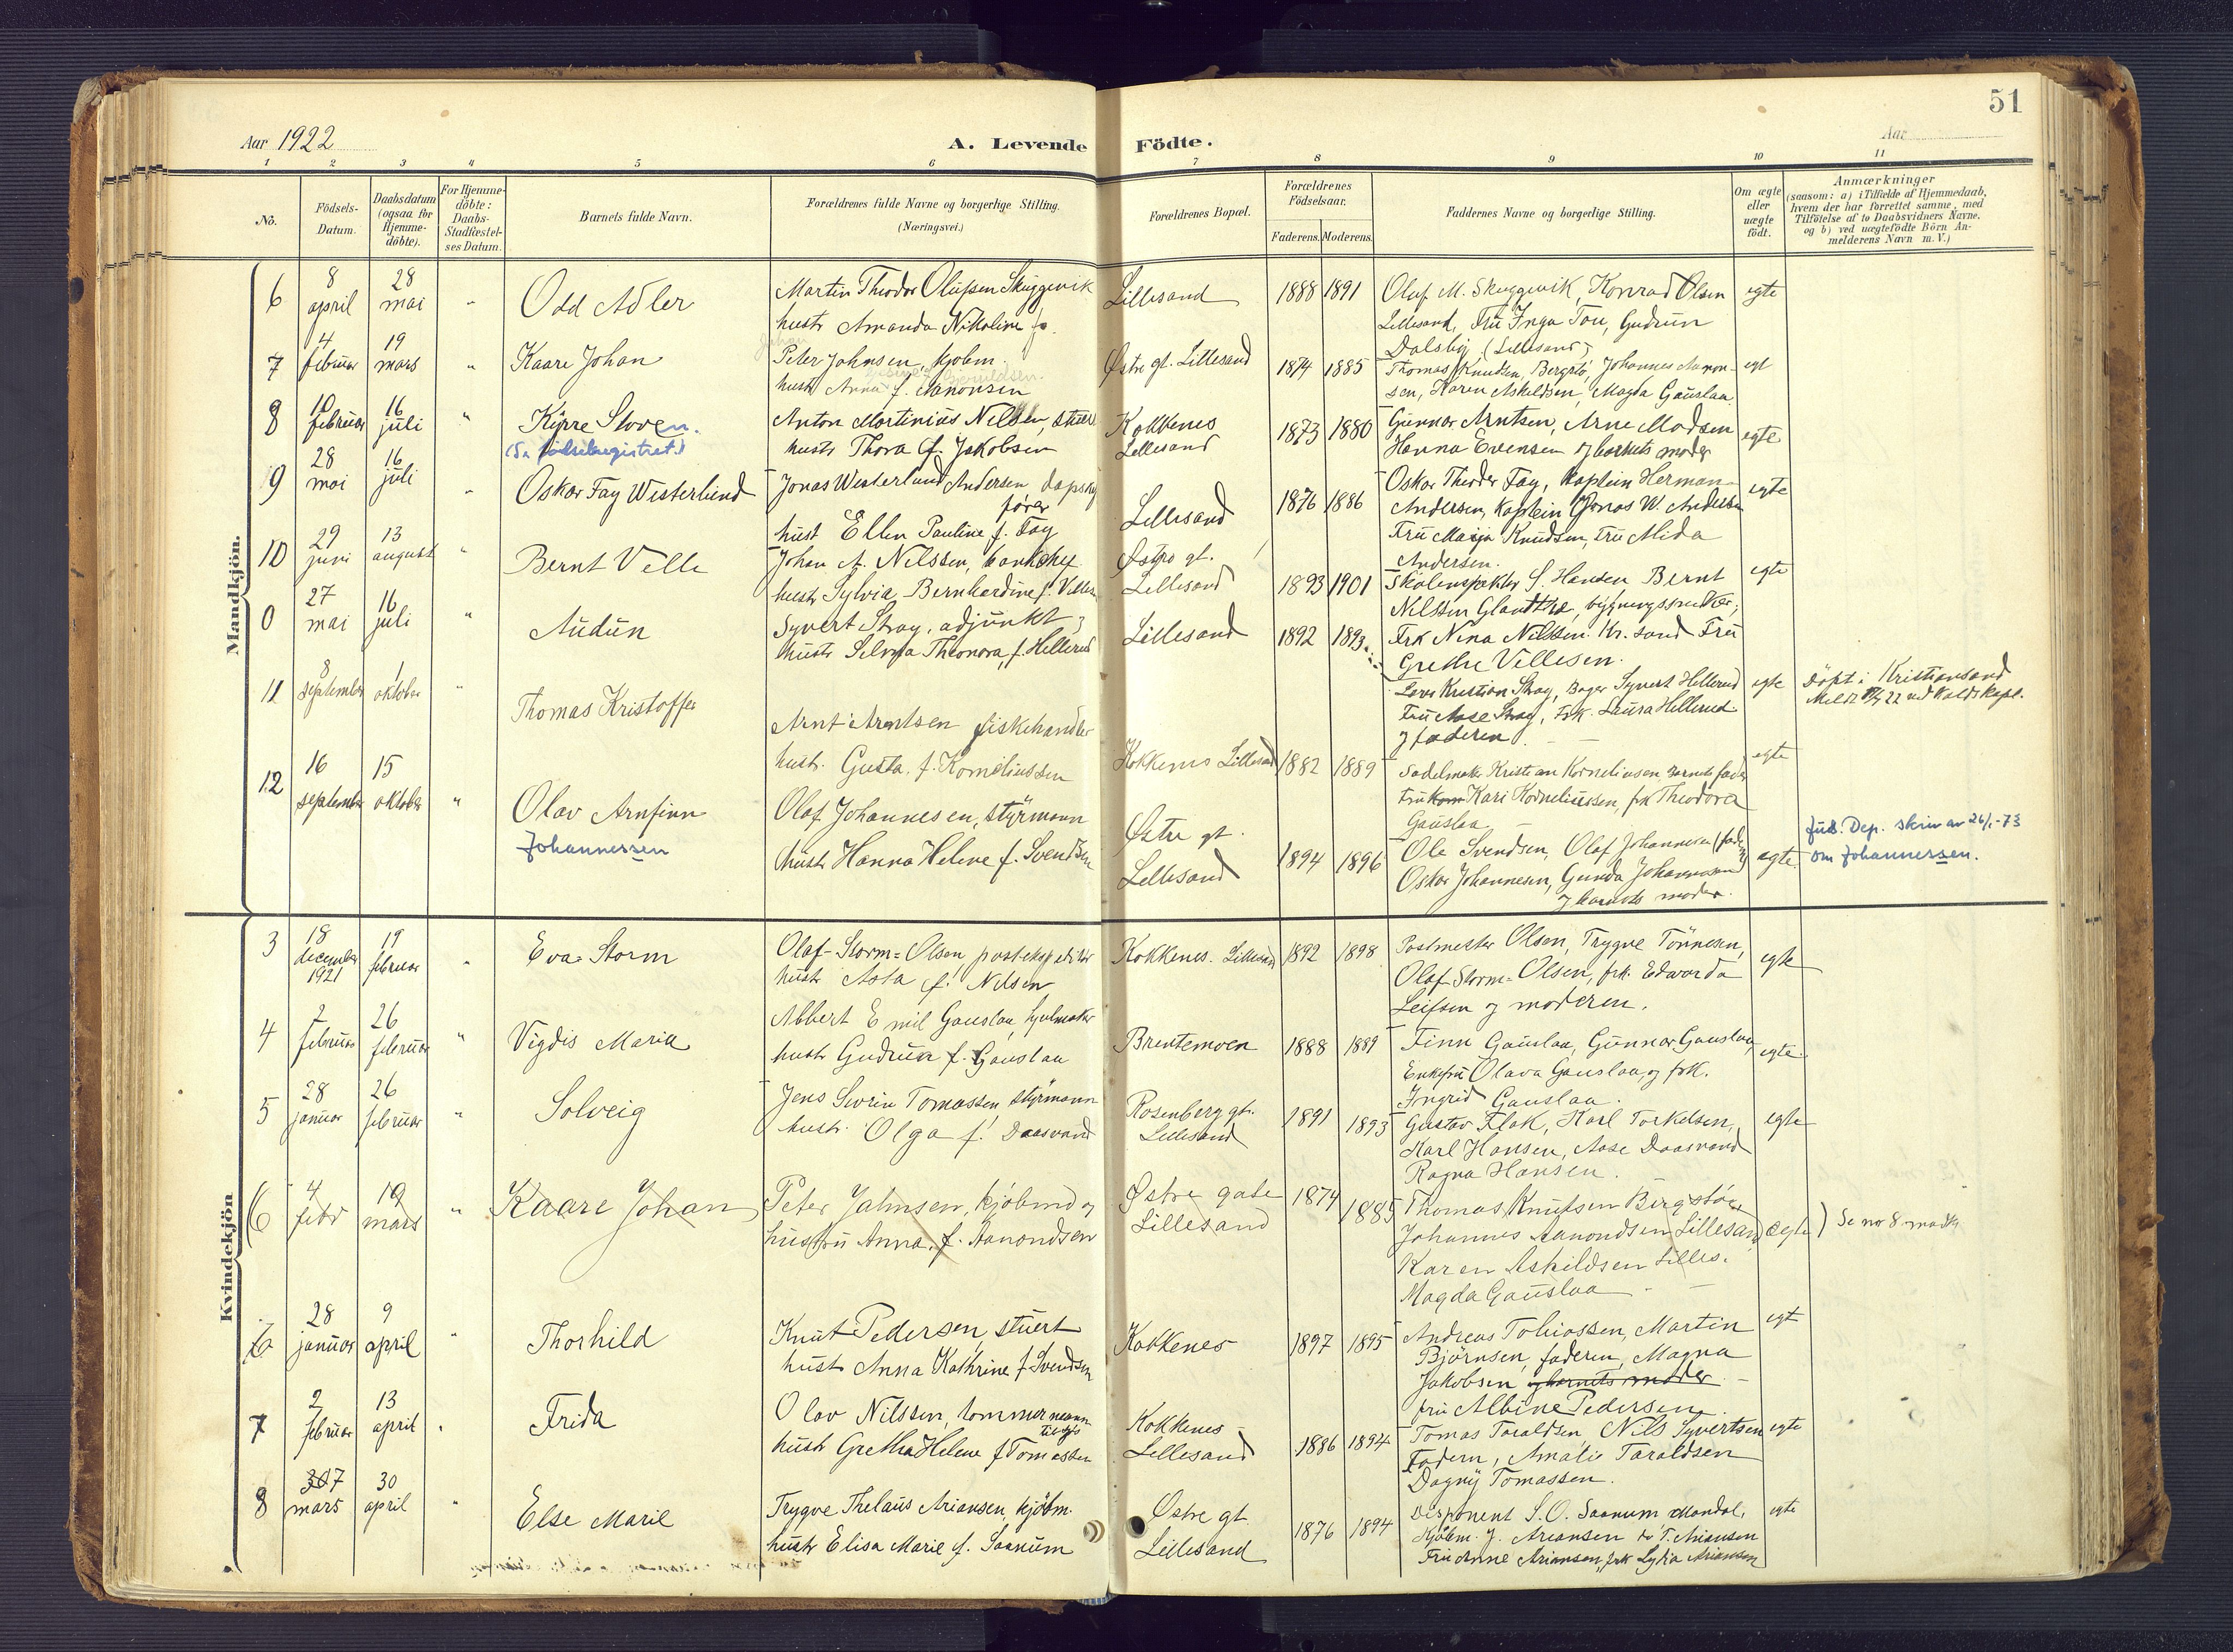 51
Aar 1922
A. Levende Födte.
Aar
1 2 3 4 5 6 7 8 9 10 11
No.
Födsels-
Datum.
Daabsdatum
(ogsaa for
Hjemme-
döbte).
For Hjemme-
döbte:
Daabs-
Stadfæstel-
ses Datum.
Barnets fulde Navn.
Forældrenes fulde Navne og borgerlige Stilling.
(Næringsvei.)
Forældrenes Bopæl.
Forældrenes
Födselsaar.
Faderens. Moderens.
Faddernes Navne og borgerlige Stilling.
Om ægte
eller
uægte
födt.
Anmærkninger
(saasom: a) i Tilfælde af Hjemmedaab,
hvem der har forrettet samme, med
Tilföielse af to Daabsvidners Navne.
og b) ved uægtefödte Börn An-
melderens Navn m. V.)
Mandkjön.
6
8
april
28
mai
"
Odd Adler
Martin Theodor Olufsen Skuggevik
hustr Amanda Nikoline
Lillesand
1888 1891
Oluf M. Skuggevik, Konrad Olsen
Lillesand, Fru Inga Tou, Gudrun
Dalsby (Lillesand)
egte
7
4
februar
19
mars
"
Kaare Johan
Johan
Peter Jahnsen, kjøbm.
hustr Anna f. Aanonsen
Østre gt. Lillesand
1874 1885
Thomas Knudsen, Bergstø, Johannes Aanon-
sen, Karen Askildsen, Magda Gauslaa
egt
8
10
februar
16
juli
"
Kåre Stoen.
(Se fødselsregistret.)
Anton Martinius Nilsen, stuert
hustr Thora f. Jakobsen
Kokkenes
Lillesand
1873 1880
Gunnar Arntsen, Arne Madsen
Hanna Evensen og barnets moder
egte
9
28
mai
16
juli
"
Oskar Fay Westerlund
Jonas Westerlund Andersen dapskib
fører
hust Ellen Pauline f. Fay
Lillesand
1876 1886
Oskar Theodor Fay, Kaptein Herman
Andersen, Kaptein Jonas W. Andersen
Fru Marja Knudsen, Fru Alida
Andersen.
egte
10
29
juni
13
august
"
Bernt Velle
Johan A. Nilssen, bankchef
hustr Sylvia Bernhardine f. Villesen
Østre gt.
Lillesand
1893 1901
Skoleinspektør S. Hansen Bernt
Nilssen
Frk Nina Nilssen Kr.sand Fru
Grethe Villesen.
egte
0
27
mai
16
juli
"
Audun
Syvert Stray, adjunkt
hustr Selma Theonora, f. Hellerud
Lillesand
1892 1893
Lars Kristian Stray, Bager Syvert Hellerud
Fru Aase Stray, Frk. Laura Hellerud
og faderen
egte
Döpt i Kristiansand
11
8
september
1
oktober
"
Thomas Kristoffer
Arnt Arntsen fiskehandler
hustr. Gusta f. Korneliussen
Kokkenes Lillesand
1882 1889
Sadelmaker Kristian Korneliusen, Barnets fader
Fru Kari Korneliussen, frk Theodora
Gauslaa
egte
12
16
september
15
oktober
"
Olav Arnfinn
Johannessen
Olaf Johannesen, styrmann
hustr Hanna Helene f. Svendsen
Østre gt.
Lillesand
1894 1896
Ole Svendsen, Olaf Johannesen (fader)
Oskar Johannesen, Gunda Johannesen
og barnets moder.
egte
Jus. Dep. skriv av 26/1-73
om Johannessen.
Kvindekjön
3
18
december
1921
19
februar
"
Eva Storm
Olaf Storm-Olsen postekspeditør
hustr Asta f. Nilsen
Kokkenes. Lillesand
1892 1898
Postmester Olsen, Trygve Tönnesen,
Olaf Storm-Olsen, frk. Edvarda
Leifsen og moderen.
egte
4
2
februar
26
februar
"
Vigdis Maria
Albert Emil Gauslaa, hjulmaker
hustr Gudrun f. Gauslaa
Brentemoen
1888 1889
Finn Gauslaa, Gunnar Gauslaa
Enkefru Olava Gauslaa, og frk.
Ingrid Gauslaa.
egte
5
28
januar
26
februar
"
Solveig
Jens Severin Tomassen styrmann
hustr. Olga f. Daasvand
Rosenberg gt.
Lillesand
1891 1893
Gustav Flak, Karl Torkelsen,
Karl Hansen, Aase Daasvand
Ragna Hansen.
egte
(6
4
febr
19
mars
"
Kaare Johan
Peter Jahnsen, kjöbmd og
hustru Anna, f. Aanondsen
Østre gate
Lillesand
1874 1885
Thomas Knutsen Bergstø,
Johannes Aanondsen Lillesand
Karen Askildsen Lilles.
Magda Gauslaa
ægte)
Se no 8 mandk
6
28
januar
9
april
"
Thorhild
Knut Pedersen, stuert
hust Anna Kathrine f Svendsen
Kokkenes
1897 1895
Andreas Tobiassen, Martin
Björnsen, faderen, Magna
Jakobsen og barnets moder
fru Albine Pedersen.
egt
7
2
februar
13
april
"
Frida
Olav Nilssen, tommermann
tilrygs
hustr Gretha Helene f Tomassen
Kokkenes
Lillesand
1886 1894
Tomas Taraldsen, Nils Syvertsen
Fadern, Amalie Taraldsen
Dagny Tomassen.
egte
8
7
mars
30
april
"
Else Marie
Trygve Thelaus Ariansen, kjöbm.
hustr Elisa Marie f. Saanum
Østre gt
Lillesand
1876 1894
Disponent S.O. Saanum Mandal,
Kjöbm. J. Ariansen T. Ariansen
Fru Anne Ariansen, frk Lydia Ariansen
egte